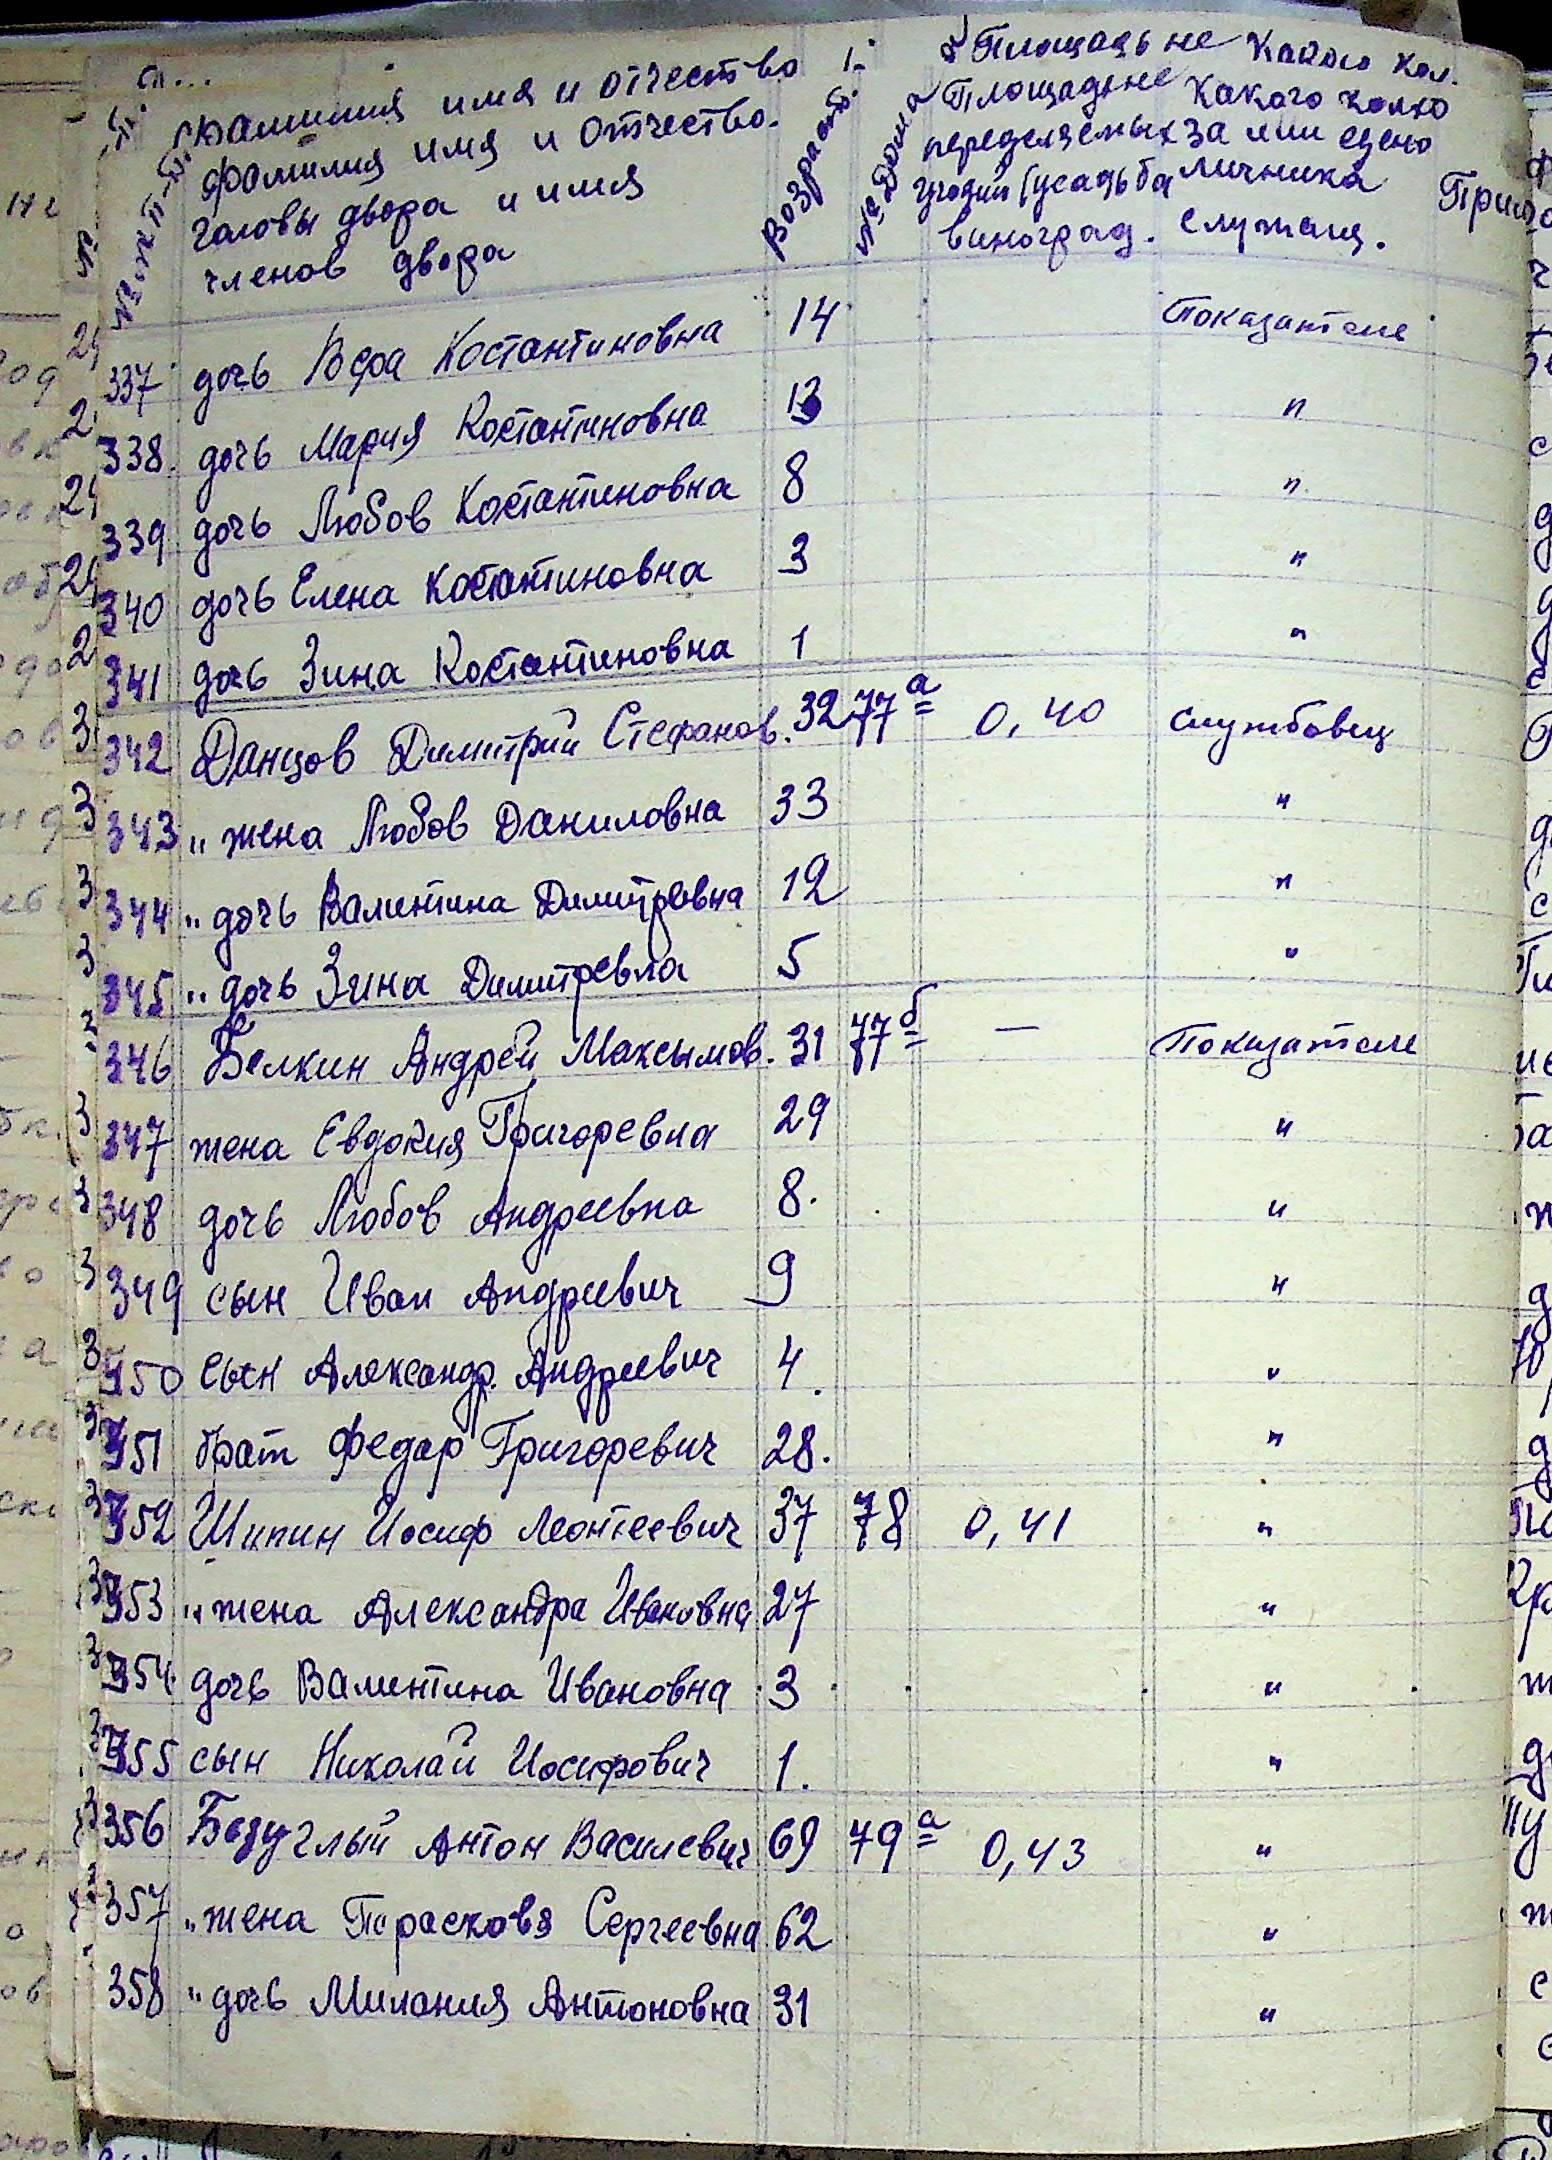 Фамилия имя и отчество
Площадь не какого кол.
№ № п-п. Фамилия имя и отчество. головы двора и имя членов двора
Возраст.
№ Дома
Площадь не переделяемых угодий (усадьба виноград.
Какого колхо за или едено личника служащ.
337 дочь Вера Костантиновна 14 Показателе
338. дочь Мария Костантиновна 13 "
339 дочь Любов Костантиновна 8 "
340 дочь Елена Костантиновна 3 "
341 дочь Зина Костантиновна 1 "
342 Данцов Димитрий Стефанов. 32 77а 0,40 службовец
343 " жена Любов Даниловна 33 "
344 " дочь Валентина Димитревна 12 "
345 " дочь Зина Димитревна 5 "
346 Белкин Андрей Максымов. 31 77б — Показателе
347 жена Евдокия Григоревна 29 "
348 дочь Любов Андреевна 8. "
349 сын Иван Андреевич 9 "
350 сын Александр. Андреевич 4. "
351 брат Федар Григоревич 28. "
352 Шипин Иосиф Леонтеевич 37 78 0,41 "
353 " жена Александра Ивановна 27 "
354. дочь Валентина Ивановна 3 "
355 сын Николай Иосифович 1. "
356 Безуглый Антон Василевич 69 79а 0,43 "
357 " жена Парасковя Сергеевна 62 "
358 " дочь Милания Антоновна 31 "